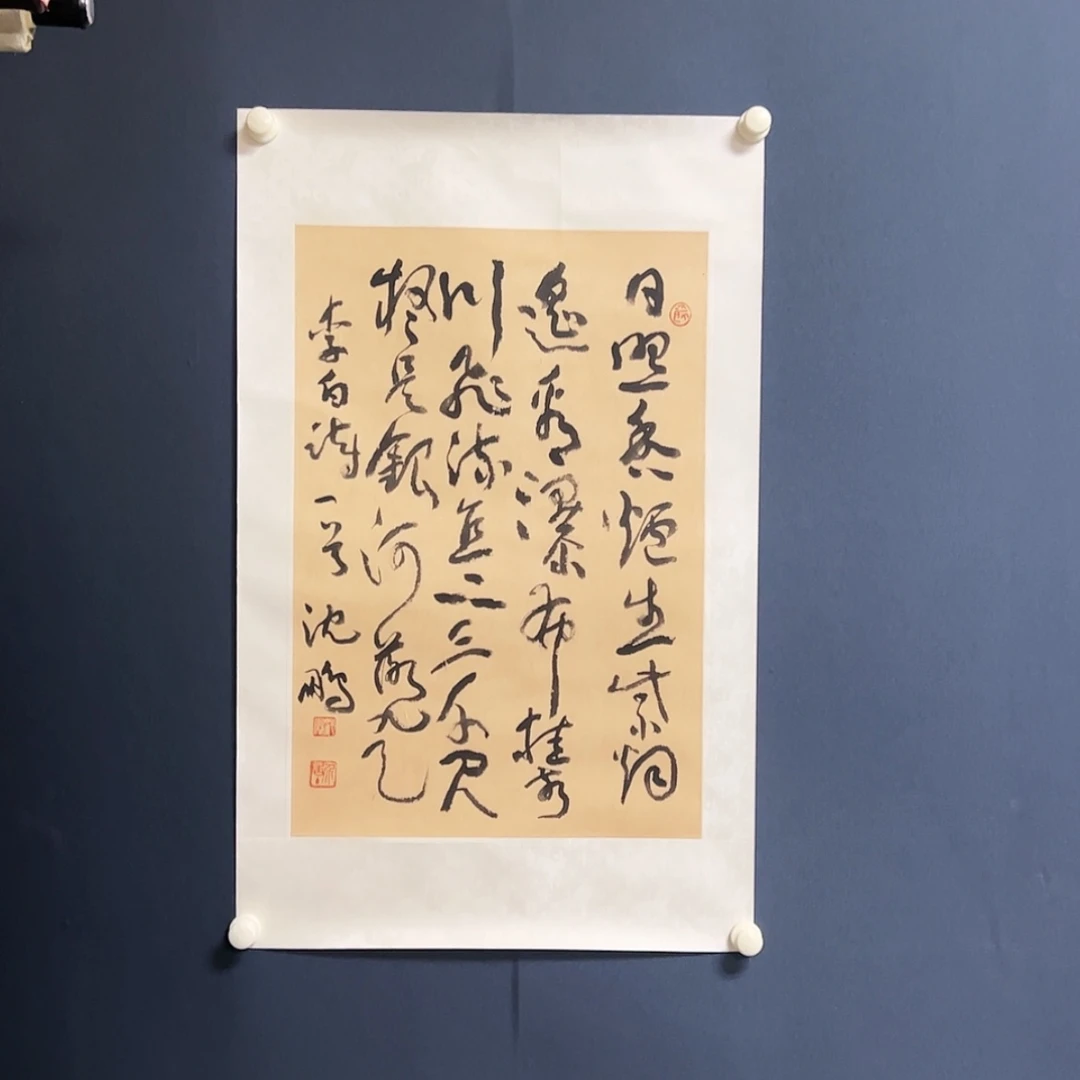 日照香爐生紫烟
遙看瀑布挂前
川飛流直下三千尺
疑是銀河落九天
李白詩一首 沈鵬